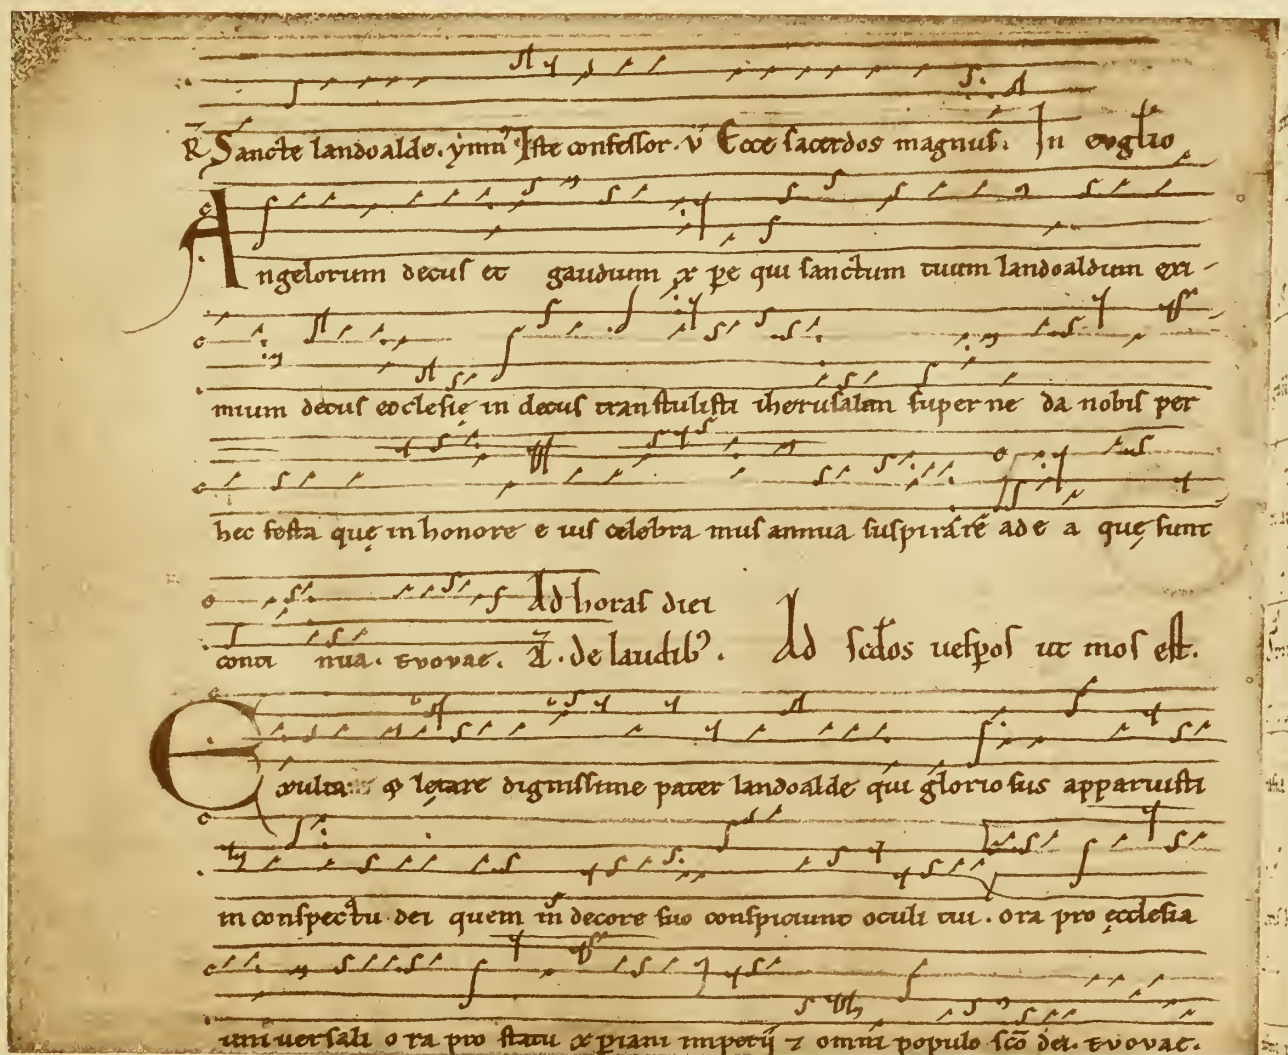 R Sancte landoalde. ymn Iste confessor. v Ecce sacerdos magnus. In evglio
Angelorum decus et gaudium xpe qui sanctum tuum landoaldum exi-
mium decus ecclesie in decus transtulisti iherusalem superne da nobis per
hec festa que in honore eius celebramus annua suspirare ad ea que sunt
Ad horas diei
continua. evovae. A. de laudib. Ad scdos vespos ut mos est.
Exulta & letare dignissime pater landoalde qui gloriosus apparuisti
in conspectu dei quem in decore suo conspiciunt oculi tui. ora pro ecclesia
universali ora pro statu xpiani imperii 7 omni populo sco dei. evovae.